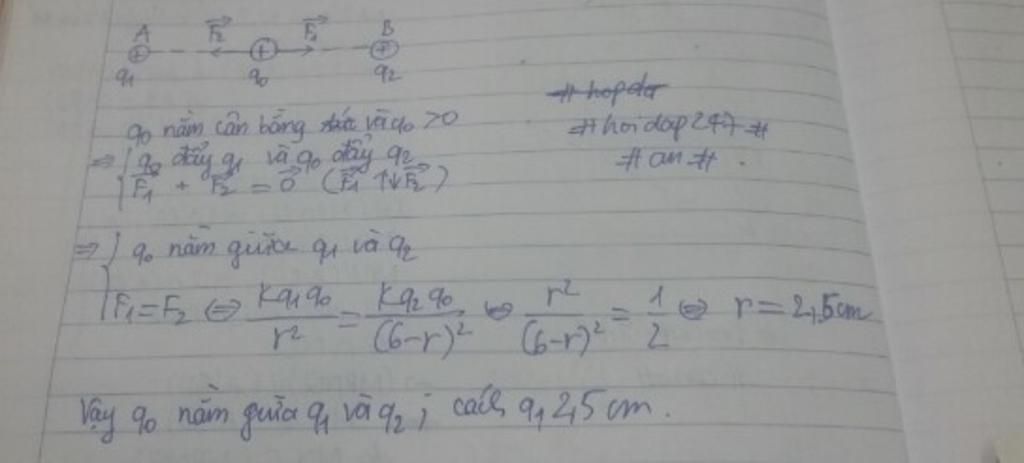 A F₂ F₁ B
q₁ q₀ q₂
q₀ nằm cân bằng và q₀ > 0
⇒ { q₀ đẩy q₁ và q₀ đẩy q₂
F₁ + F₂ = 0 (F₁ ↑↓ F₂)
# hoidap247 #
# an # .
⇒ { q₀ nằm giữa q₁ và q₂
F₁ = F₂ ⇔ kq₁q₀/r² = kq₂q₀/(6-r)² ⇔ r²/(6-r)² = 1/2 ⇔ r = 2,5cm
Vậy q₀ nằm giữa q₁ và q₂ ; cách q₁ 2,5 cm.